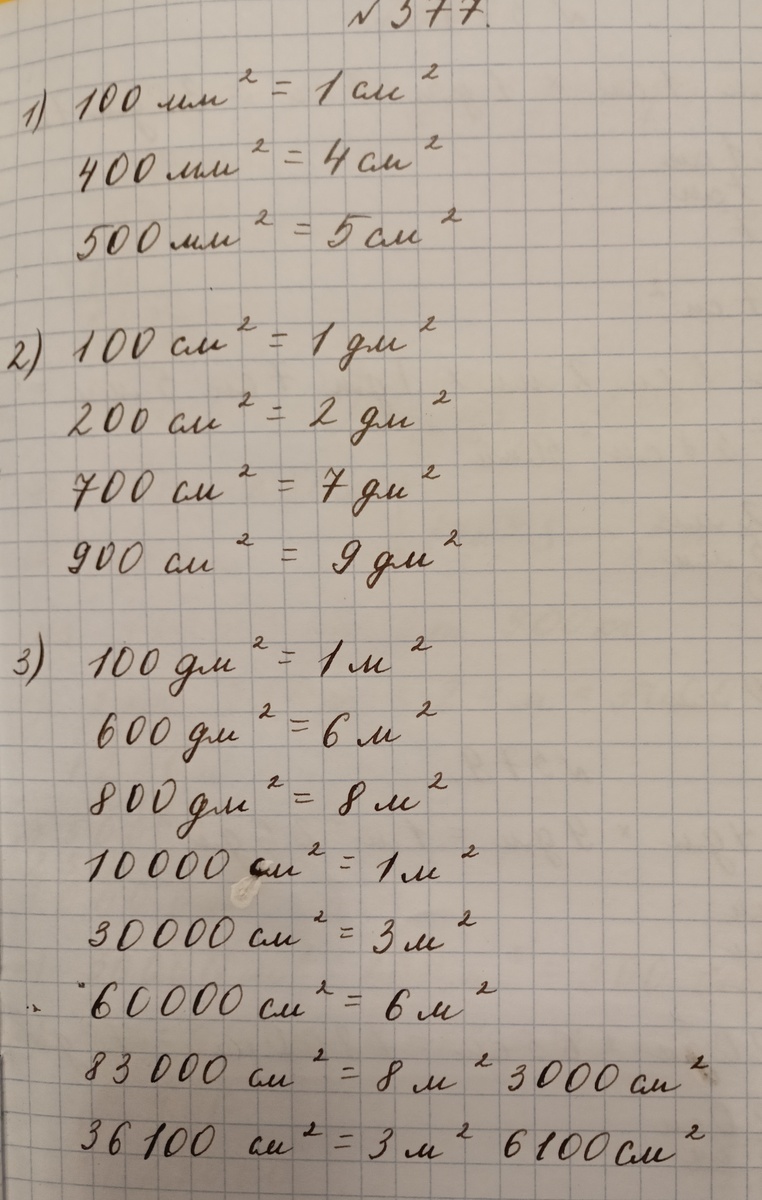 №377.
1) 100 мм² = 1 см²
400 мм² = 4 см²
500 мм² = 5 см²
2) 100 см² = 1 дм²
200 см² = 2 дм²
700 см² = 7 дм²
900 см² = 9 дм²
3) 100 дм² = 1 м²
600 дм² = 6 м²
800 дм² = 8 м²
10000 см² = 1 м²
30000 см² = 3 м²
60000 см² = 6 м²
83000 см² = 8 м² 3000 см²
36100 см² = 3 м² 6100 см²